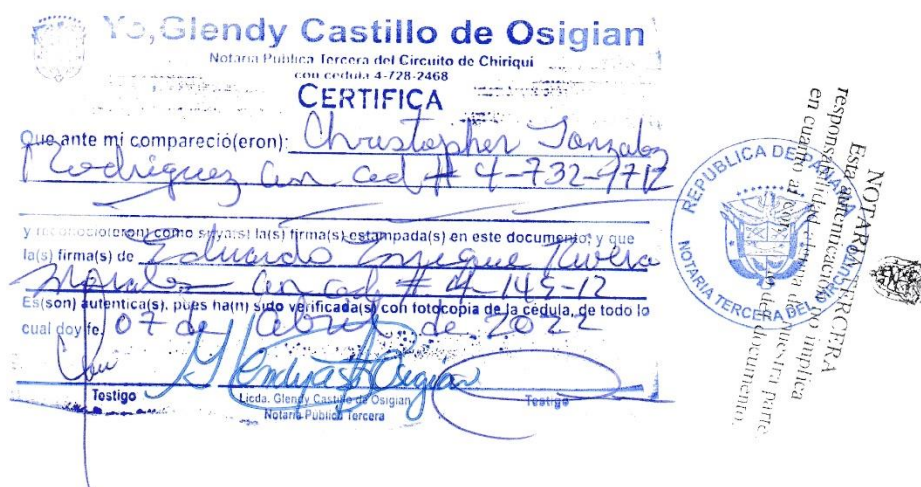 Yo, Glendy Castillo de Osigian
Notaria Pública Tercera del Circuito de Chiriqui
con cedula 4-728-2468
CERTIFICA
Que ante mi compareció(eron): Christopher Gonzalez
Rodriguez con ced # 4-732-9712
y reconoció(eron) como suya(s) la(s) firma(s) estampada(s) en este documento, y que
la(s) firma(s) de Eduardo Enrique Rivera
Morales con ced # 4-145-12
Es(son) autentica(s), pues ha(n) sido verificada(s) con fotocopia de la cédula, de todo lo
cual doy fe, 07 de abril de 2022
Testigo
Licda. Glendy Castillo de Osigian
Notaria Pública Tercera
Testigo
REPUBLICA DE PANAMA
NOTARIA TERCERA DEL CIRCUITO
NOTARIA TERCERA
Esta autenticación no implica
responsabilidad alguna de nuestra parte
en cuanto al contenido del documento.